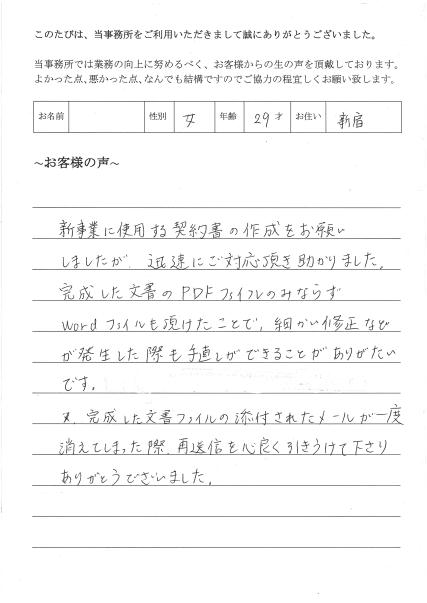 このたびは、当事務所をご利用いただきまして誠にありがとうございました。
当事務所では業務の向上に努めるべく、お客様からの生の声を頂戴しております。
よかった点、悪かった点、なんでも結構ですのでご協力の程宜しくお願い致します。
お名前 性別 女 年齢 29才 お住い 新宿
~お客様の声~
新事業に使用する契約書の作成をお願い
しましたが、迅速にご対応頂き助かりました。
完成した文書のPDFファイルのみならず
Wordファイルも頂けたことで、細かい修正など
が発生した際も手直しができることがありがたい
です。
又、完成した文書ファイルの添付されたメールが一度
消えてしまった際、再送信を心良く引きうけて下さり
ありがとうございました。